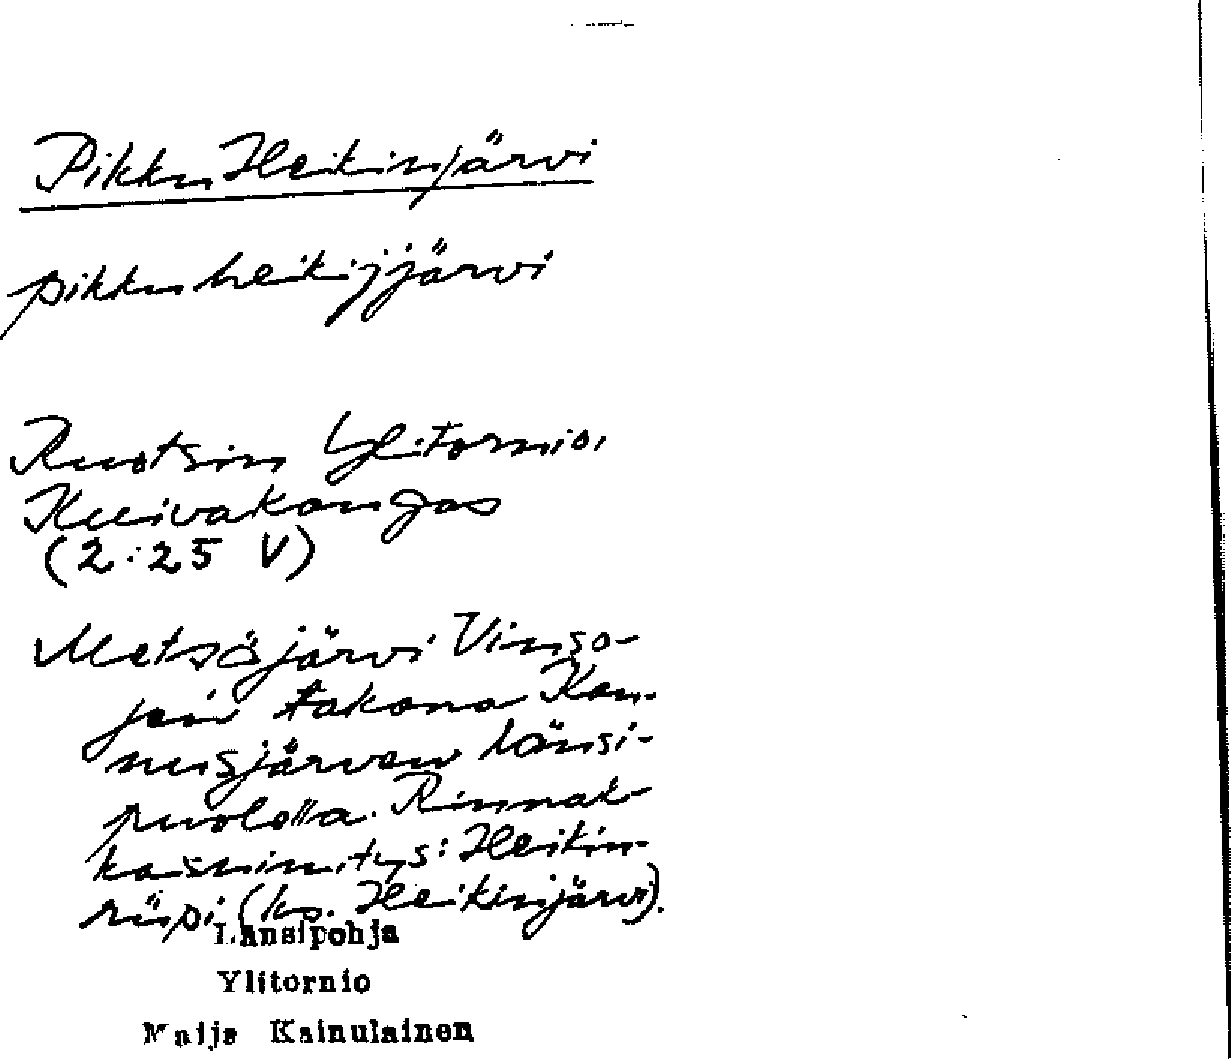 Pikku Heikinjärvi
pikku heikijjärvi
Ruotsin Ylitornio,
Kuivakangas
(2:25 V)
Metsäjärvi Vinso-
jen takana Kan-
nusjärven länsi-
puolella. Rinnak-
kaisnimitys: Heikin-
riipi (ks. Heikinjärvi).
Länsipohja
Ylitornio
Maija Kainulainen